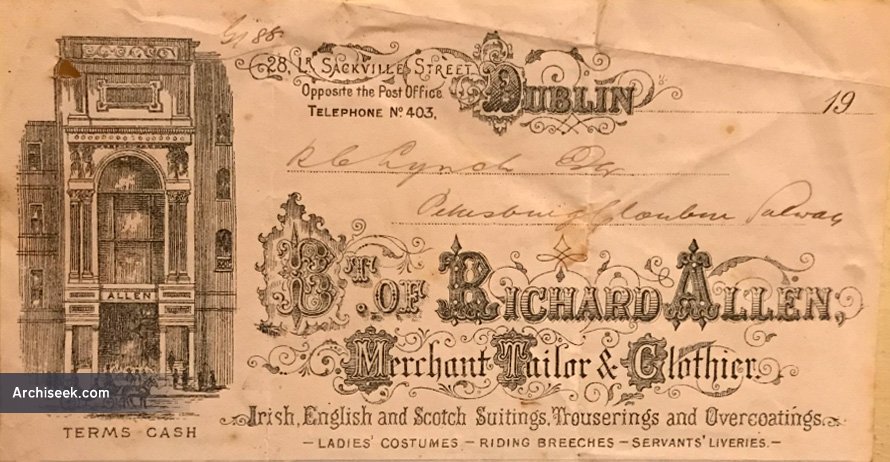 28, Lr. SACKVILLE STREET,
Opposite the Post Office.
TELEPHONE No. 403,
DUBLIN
19
R C Lynch Esqr
Petersburg Clonbur Galway
ALLEN
BT. OF RICHARD ALLEN,
Merchant Tailor & Clothier.
Irish, English and Scotch Suitings, Trouserings and Overcoatings.
– LADIES' COSTUMES – RIDING BREECHES – SERVANTS' LIVERIES. –
TERMS CASH
Archiseek.com